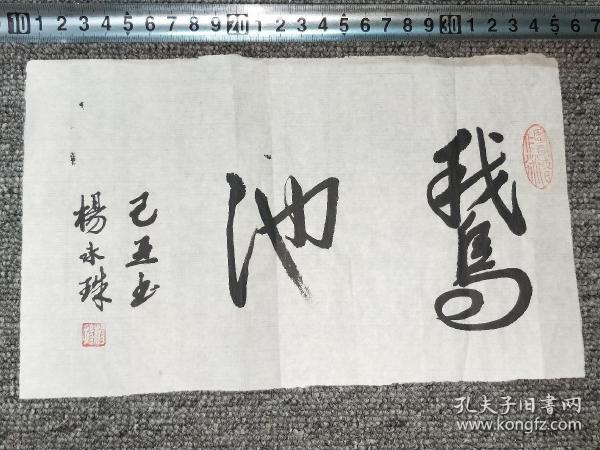 10 1 2 3 4 5 6 7 8 9 20 1 2 3 4 5 6 7 8 9 30 1 2 3 4 5 6 7
鵞
池
己丑书
楊永珠
孔夫子旧書网
www.kongfz.com